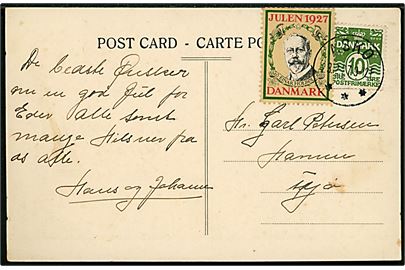 POST CARD - CARTE PO
JULEN 1927
DANMARK
10
POSTFRIMÆRKE
De bedste Ønsker
om en god Jul for
Eder alle samt
mange Hilsner fra
os alle.
Hans og Johanne
Hr. Carl Petersen
Havnen